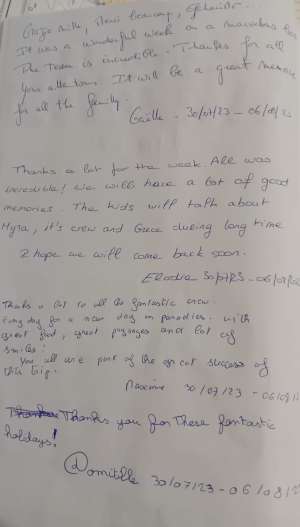 It was a wonderful week on a marvelous
The Team is incredible. Thanks for all
your attentions. It will be a great memorie
for all the family.
Gaëlle. 30/07/23 - 06/08/23
Thanks a lot for the week. All was
incredible! We will have a lot of good
memories. The kids will talk about
Hyra, it's crew and Grece during long time
I hope we will come back soon.
Elodie 30/07/23 - 06/08/
Thanks a lot to all the fantastic crew.
Every day for a new day in paradise. with
great food, great paysages and lot of
smiles.
You all are part of the great success of
this trip.
Maxime 30/07/23 - 06/08/
Thanks you for these fantastic
holidays!
Domitille 30/07/23 - 06/08/2